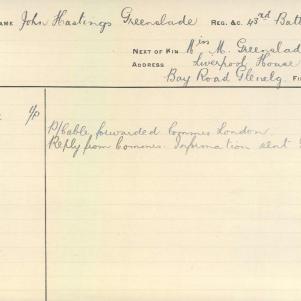 AME John Hastings Greenslade REG. &C. 43rd Batt
NEXT OF KIN Miss M. Greenslad
ADDRESS Liverpool House
Bay Road Glenelg. FI
P/Cable, forwarded Commes London.
Reply from Commes. Information sent